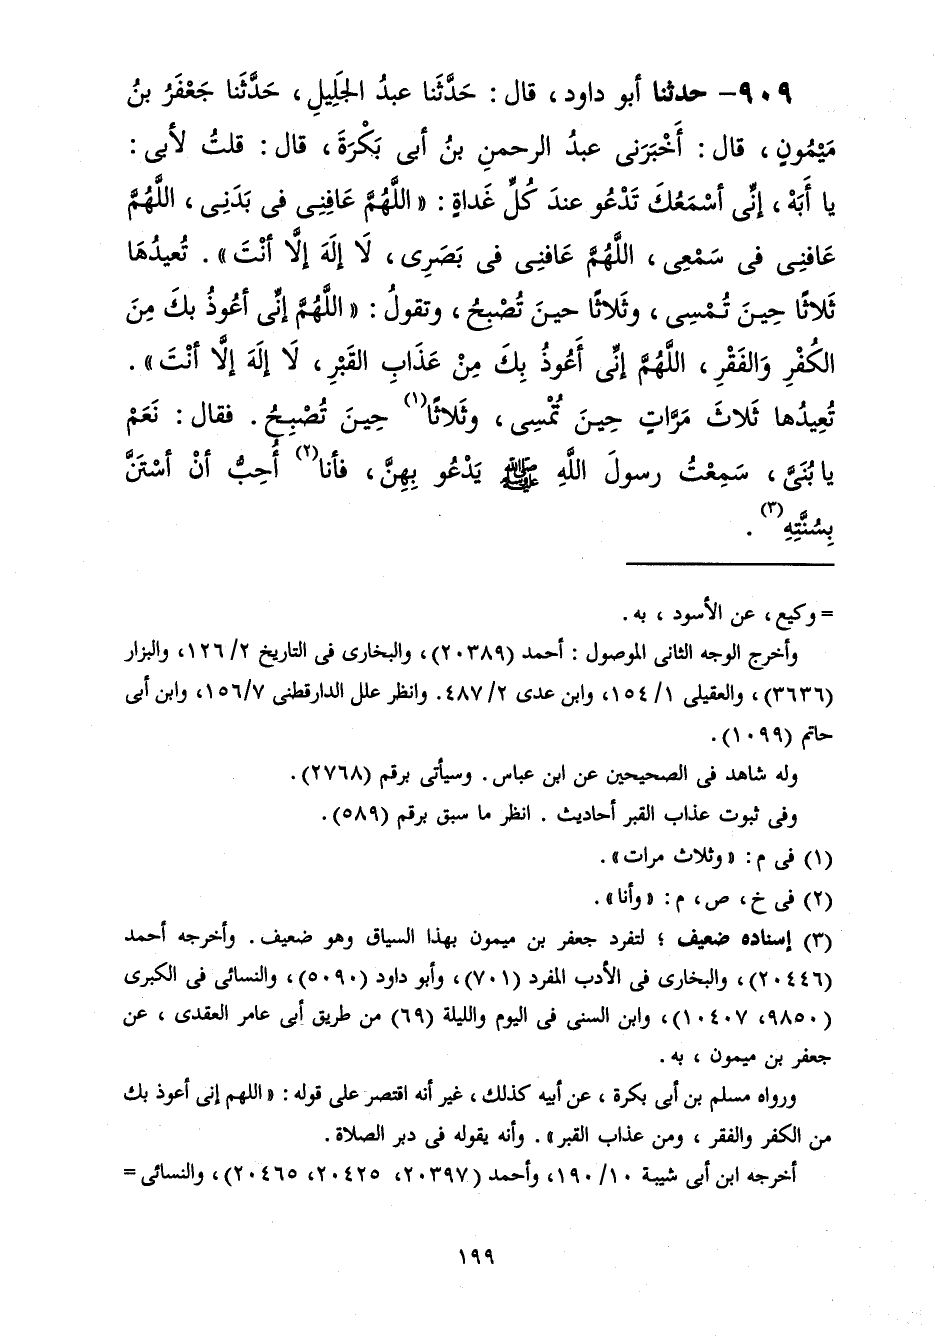 ٩٠٩- حدثنا أبو داود ، قال : حَدَّثَنا عبدُ الجَلِيلِ ، حَدَّثَنا جَعْفَرُ بنُ
مَيْمُونٍ ، قال : أَخْبَرَنى عبدُ الرحمنِ بنُ أبى بَكْرَةَ ، قال : قلتُ لأبى :
يا أَبَهْ ، إنِّى أسْمَعُكَ تَدْعُو عندَ كُلِّ غَداةٍ : « اللَّهُمَّ عَافِنِى فى بَدَنِى ، اللَّهُمَّ
عَافنِى فى سَمْعِى ، اللَّهُمَّ عَافنِى فى بَصَرِى ، لَا إلَهَ إلَّا أنْتَ » . تُعيدُهَا
ثَلاثًا حِينَ تُـمْسِى ، وثَلاثًا حينَ تُصْبِحُ ، وتقولُ : « اللَّهُمَّ إنِّى أعُوذُ بكَ مِنَ
الكُفْرِ وَالفَقْرِ ، اللَّهُمَّ إنِّى أَعُوذُ بِكَ مِنْ عَذَابِ القَبْرِ ، لَا إلَهَ إلَّا أنْتَ » .
تُعِيدُها ثَلاثَ مَرَّاتٍ حِينَ تُمْسِى ، وثَلاثًا(١) حِينَ تُصْبِحُ . فقال : نَعَمْ
يا بُنَىَّ ، سَمِعْتُ رسولَ اللَّهِ ﷺ يَدْعُو بِهِنَّ ، فأنا(٢) أُحِبُّ أنْ أسْتَنَّ
بِسُنَّتِهِ(٣) .
= وكيع ، عن الأسود ، به .
وأخرج الوجه الثانى الموصول : أحمد (٢٠٣٨٩) ، والبخارى فى التاريخ ٢/ ١٢٦، والبزار
(٣٦٣٦) ، والعقيلى ١/ ١٥٤، وابن عدى ٢/ ٤٨٧. وانظر علل الدارقطنى ١٥٦/٧، وابن أبى
حاتم (١٠٩٩) .
وله شاهد فى الصحيحين عن ابن عباس . وسيأتى برقم (٢٧٦٨) .
وفى ثبوت عذاب القبر أحاديث . انظر ما سبق برقم (٥٨٩) .
(١) فى م : « وثلاث مرات » .
(٢) فى خ ، ص ، م : « وأنا » .
(٣) إسناده ضعيف ؛ لتفرد جعفر بن ميمون بهذا السياق وهو ضعيف . وأخرجه أحمد
(٢٠٤٤٦) ، والبخارى فى الأدب المفرد (٧٠١) ، وأبو داود (٥٠٩٠) ، والنسائى فى الكبرى
(٩٨٥٠، ١٠٤٠٧) ، وابن السنى فى اليوم والليلة (٦٩) من طريق أبى عامر العقدى ، عن
جعفر بن ميمون ، به .
ورواه مسلم بن أبى بكرة ، عن أبيه كذلك ، غير أنه اقتصر على قوله : « اللهم إنى أعوذ بك
من الكفر والفقر ، ومن عذاب القبر » . وأنه يقوله فى دبر الصلاة .
أخرجه ابن أبى شيبة ١٠/ ١٩٠، وأحمد (٢٠٣٩٧، ٢٠٤٢٥، ٢٠٤٦٥) ، والنسائى =
١٩٩